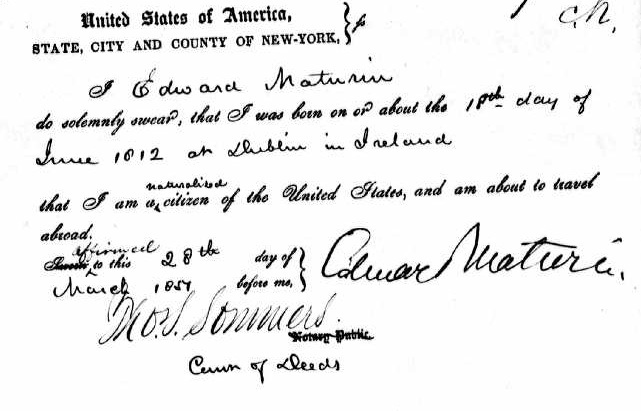 United States of America,
STATE, CITY AND COUNTY OF NEW-YORK,
I Edward Maturin
do solemnly swear, that I was born on or about the 18th day of
June 1812 at Dublin in Ireland
that I am a naturalized citizen of the United States, and am about to travel
abroad.
affirmed
Sworn to this 28th day of
March 1857 before me,
Edward Maturin.
Thos. S. Sommers.
Notary Public
Comr of Deeds